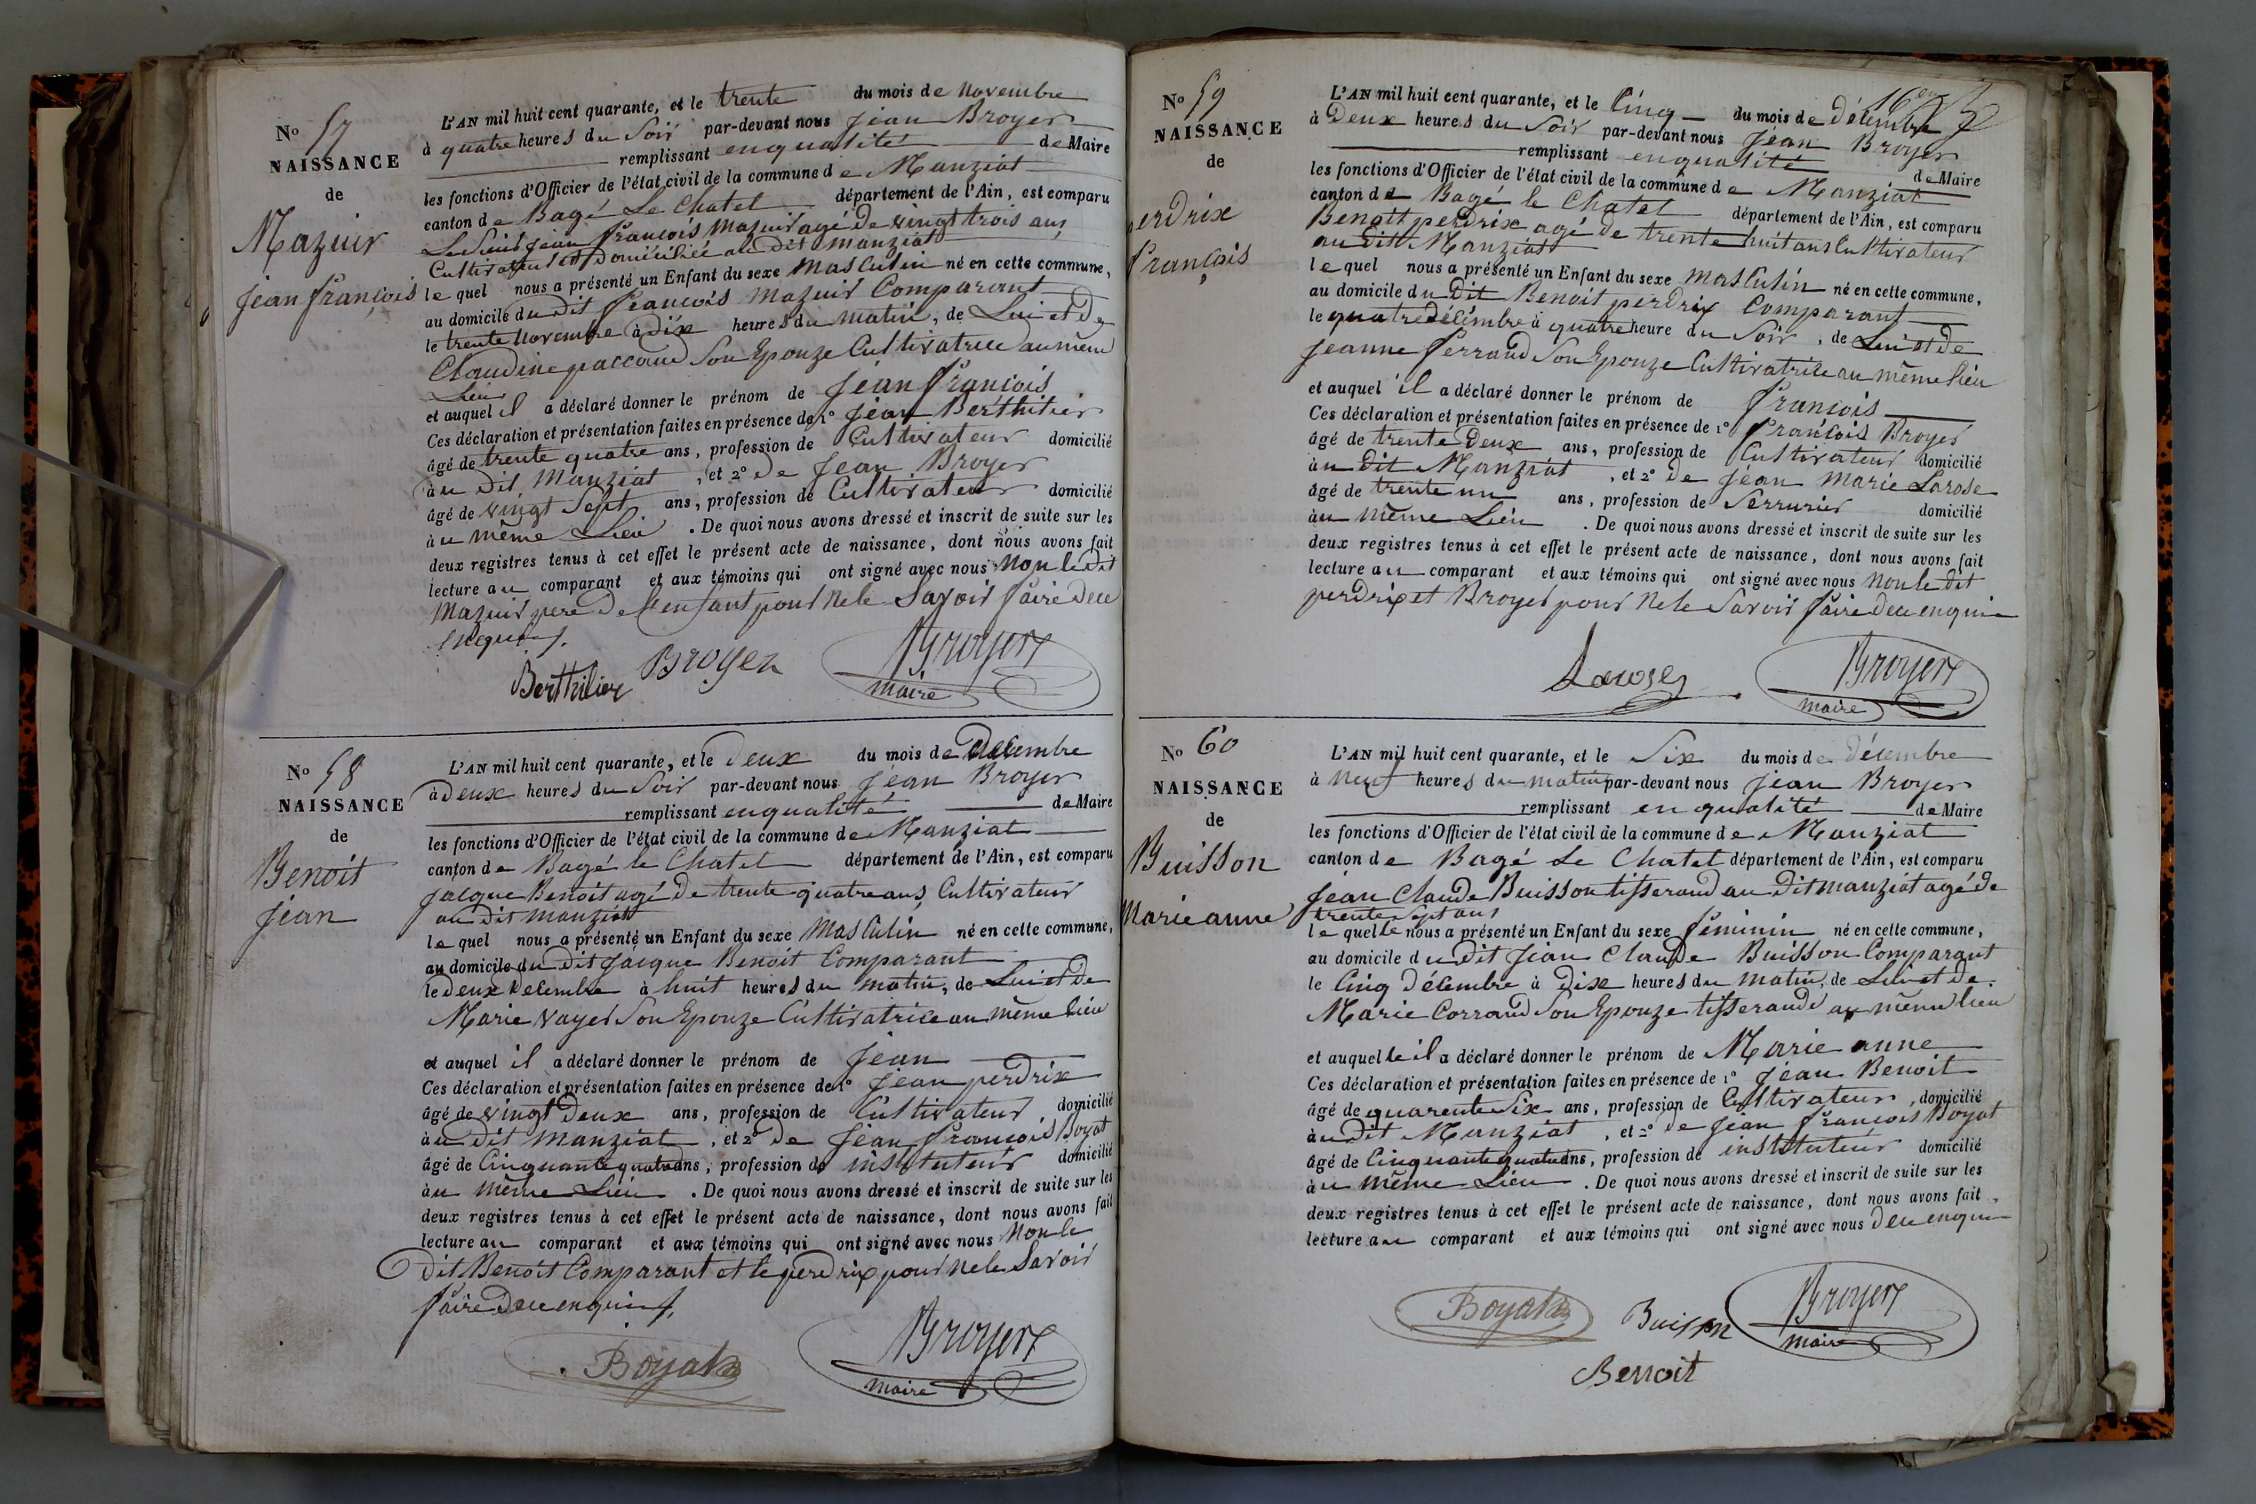 N° 57
NAISSANCE
de
Mazuir
jean françois
L'AN mil huit cent quarante, et le trente du mois de novembre
à quatre heures du Soir par-devant nous jean Broyer
remplissant enqualité de Maire
les fonctions d'Officier de l'état civil de la commune de Manziat
canton de Bagé Le Chatel département de l'Ain, est comparu
Le Sieur jean françois Mazuir agé de vingt trois ans
Cultivateur et Domicilié au dit manziat
le quel nous a présenté un Enfant du sexe Masculin né en cette commune,
au domicile du dit françois Mazuir Comparant
le trente novembre à dix heures du matin, de Lui et De
Claudine paccoud Son Epouze Cultivatrice au même
Lieu
et auquel il a déclaré donner le prénom de jean françois
Ces déclaration et présentation faites en présence de 1° jean Berthilier
âgé de trente quatre ans, profession de Cultivateur domicilié
au Dit Manziat, et 2° de jean Broyer
âgé de vingt Sept ans, profession de Cultivateur domicilié
au même Lieu. De quoi nous avons dressé et inscrit de suite sur les
deux registres tenus à cet effet le présent acte de naissance, dont nous avons fait
lecture au comparant et aux témoins qui ont signé avec nous Non le Dit
Mazuir pere De l'enfant pour Ne le Savoir faire de ce
enquis
Berthilier Broyer Broyer
maire
N° 58
NAISSANCE
de
Benoit
jean
L'AN mil huit cent quarante, et le deux du mois de Décembre
à deux heures du Soir par-devant nous jean Broyer
remplissant enqualité de Maire
les fonctions d'Officier de l'état civil de la commune de Manziat
canton de Bagé le Chatel département de l'Ain, est comparu
jacque Benoit agé De trente quatre ans Cultivateur
au dit manziat
le quel nous a présenté un Enfant du sexe Masculin né en cette commune,
au domicile du Dit jacque Benoit Comparant
le deux Decembre à huit heures du matin, de Lui et De
Marie vayer Son Epouze Cultivatrice au même lieu
et auquel il a déclaré donner le prénom de jean
Ces déclaration et présentation faites en présence de 1° jean perdrix
âgé de vingt Deux ans, profession de Cultivateur, domicilié
au Dit Manziat, et 2° De jean françois Boyat
âgé de Cinquante quatre ans, profession de instituteur domicilié
au même Lieu. De quoi nous avons dressé et inscrit de suite sur les
deux registres tenus à cet effet le présent acte de naissance, dont nous avons fait
lecture au comparant et aux témoins qui ont signé avec nous Non le
Dit Benoit Comparant et le perdrix pour Ne le Savoir
faire De ce enquis
Boyat Broyer
maire
N° 59
NAISSANCE
de
perdrix
françois
L'AN mil huit cent quarante, et le cinq du mois de décembre
à Deux heures du Soir par-devant nous jean Broyer
remplissant enqualité de Maire
les fonctions d'Officier de l'état civil de la commune de Manziat
canton de Bagé le Chatel département de l'Ain, est comparu
Benoit perdrix agé de trente huit ans Cultivateur
au dit Manziat
le quel nous a présenté un Enfant du sexe Masculin né en cette commune,
au domicile du Dit Benoit perdrix Comparant
le quatre décembre à quatre heure du Soir, de Lui et de
jeanne ferrand Son Epouze Cultivatrice au même lieu
et auquel il a déclaré donner le prénom de françois
Ces déclaration et présentation faites en présence de 1° françois Broyer
âgé de trente Deux ans, profession de Cultivateur domicilié
au Dit Manziat, et 2° De jean Marie Larose
âgé de trente un ans, profession de Serrurier domicilié
au même Lieu. De quoi nous avons dressé et inscrit de suite sur les
deux registres tenus à cet effet le présent acte de naissance, dont nous avons fait
lecture au comparant et aux témoins qui ont signé avec nous Non le Dit
perdrix et Broyer pour Ne le Savoir faire de ce enquis
Larose Broyer
maire
N° 60
NAISSANCE
de
Buisson
Marie anne
L'AN mil huit cent quarante, et le Six du mois de décembre
à neuf heures du matin par-devant nous jean Broyer
remplissant en qualité de Maire
les fonctions d'Officier de l'état civil de la commune de Manziat
canton de Bagé Le Chatel département de l'Ain, est comparu
jean Claude Buisson tisserand au Dit manziat agé de
trente Sept ans
le quelle nous a présenté un Enfant du sexe féminin né en cette commune,
au domicile du Dit jean Claude Buisson Comparant
le Cinq Décembre à Dix heures du Matin, de Lui et De
Marie Corrand Son Epouze tisserande au même lieu
et auquelle il a déclaré donner le prénom de Marie anne
Ces déclaration et présentation faites en présence de 1° jean Benoit
âgé de quarente Six ans, profession de Cultivateur, domicilié
au Dit Manziat, et 2° de jean françois Boyat
âgé de Cinquante quatre ans, profession de instituteur domicilié
au même Lieu. De quoi nous avons dressé et inscrit de suite sur les
deux registres tenus à cet effet le présent acte de naissance, dont nous avons fait
lecture au comparant et aux témoins qui ont signé avec nous de ce enquis
Boyat Buisson Broyer
maire
Benoit